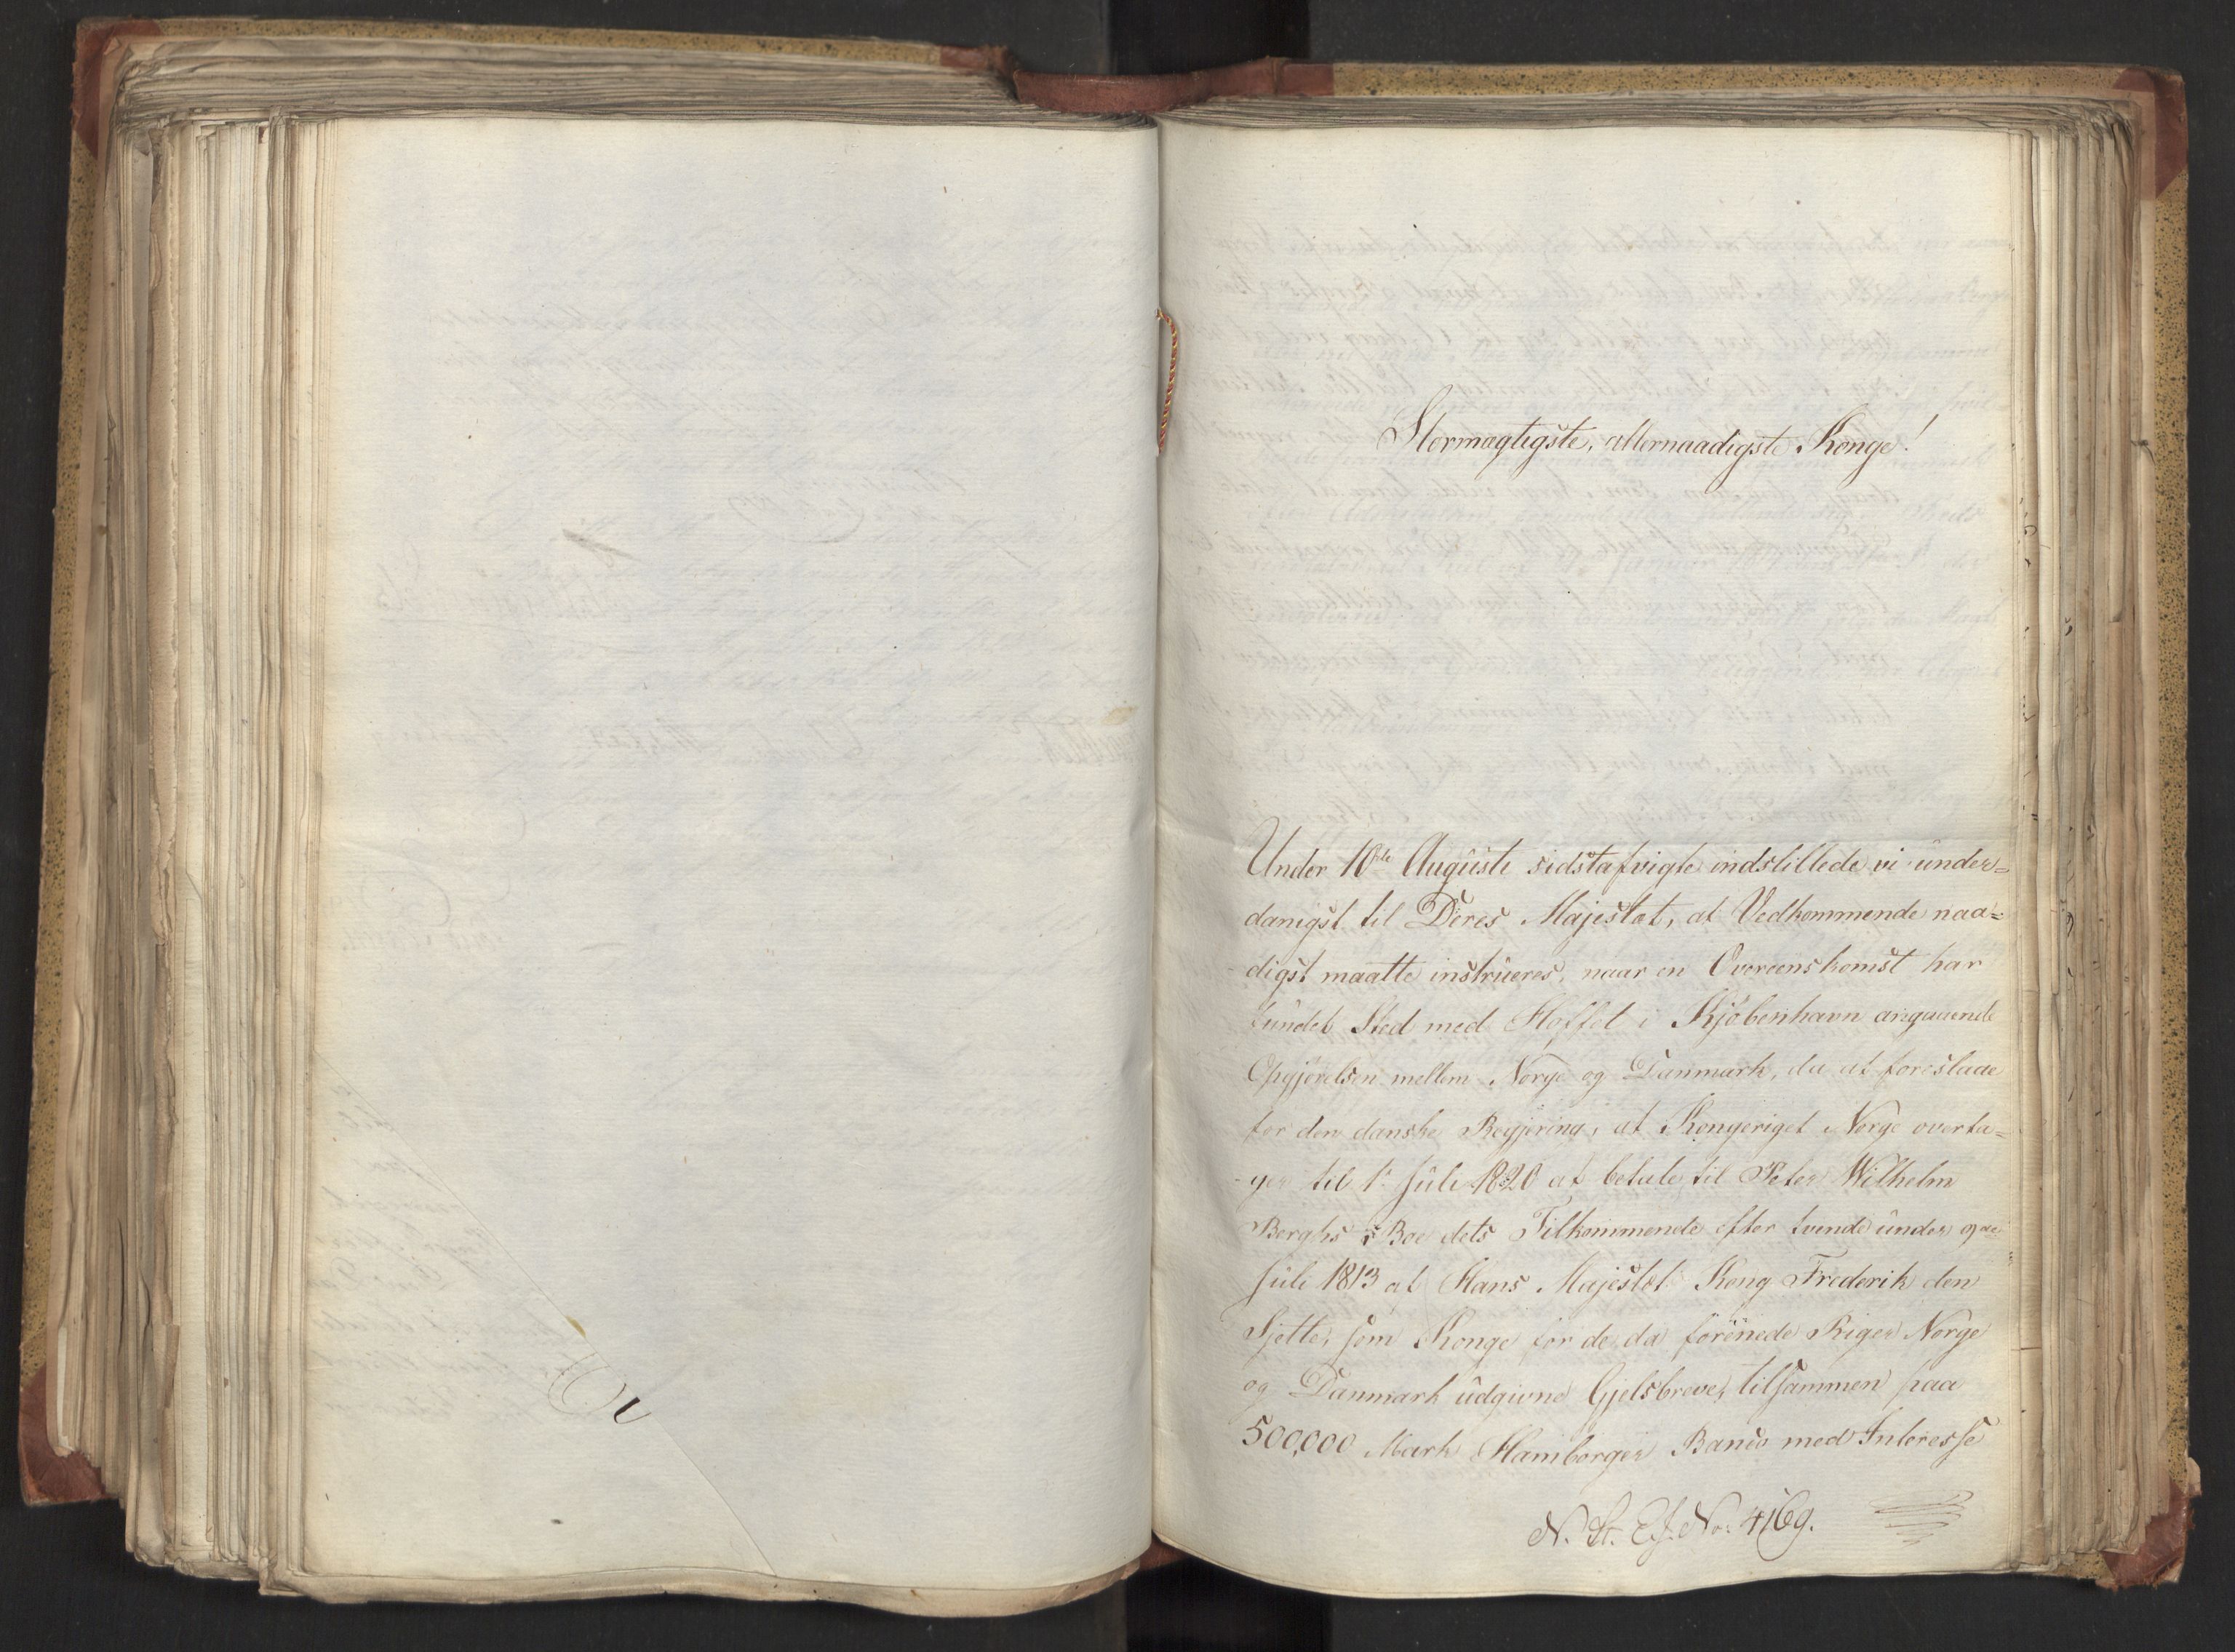 Stormægtigste, allernaadigste Konge!
Under 10de Augusti sidstafvigte indstillede vi under=
danigst til Deres Majestæt, at Vedkommende naa=
digst maatte instrueres, naar en Overeenskomst har
fundet Sted med Hoffet i Kjøbenhavn angaaende
Opgjørelsen mellem Norge og Danmark, da at foreslaae
for den danske Regjering, at Kongeriget Norge overta=
ger til 1. Juli 1820 at betale til Peter Wilhelm
Berghs Boe dets Tilkommende efter tvende under 9de
Juli 1813 af Hans Majestæt Kong Frederik den
Sjette, som Konge for de da forenede Riger Norge
og Danmark udgivne Gjelsbreve, tilsammen paa
500,000 Mark Hamborger Banco med Interesse
N. St. E. J. No: 4169.